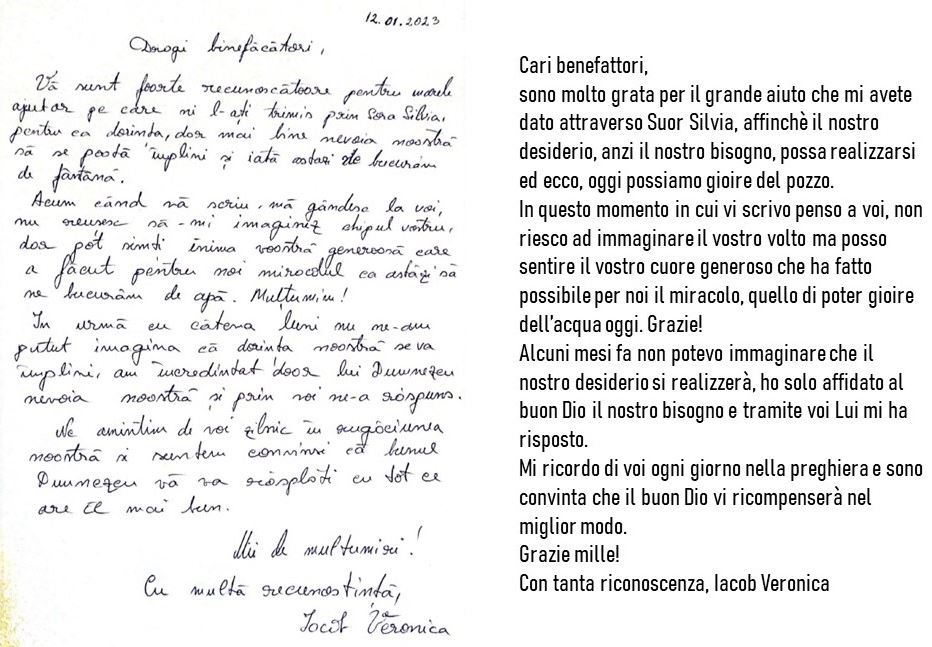 12.01.2023
Dragi binefăcători,
Vă sunt foarte recunoscătoare pentru marele
ajutor pe care ni l-ați trimis prin Sora Silvia,
pentru ca dorința, dar mai bine nevoia noastră
să se poată împlini și iată astazi ne bucurăm
de fântână.
Acum când vă scriu, mă gândesc la voi,
nu reusesc să-mi imaginez chipul vostru,
dar pot simți inima voastră generoasă care
a făcut pentru noi miracolul ca astăzi să
ne bucurăm de apă. Mulțumim!
In urmă cu câteva luni nu ne-am
putut imagina că dorința noastră se va
împlini, am încredințat doar lui Dumnezeu
nevoia noastră și prin voi ne-a răspuns.
Ne amintim de voi zilnic în rugăciunea
noastră și suntem convinsi că bunul
Dumnezeu vă va răsplăti cu tot ce
are El mai bun.
Mii de multumiri!
Cu multă recunostință,
Iacob Veronica
Cari benefattori,
sono molto grata per il grande aiuto che mi avete
dato attraverso Suor Silvia, affinchè il nostro
desiderio, anzi il nostro bisogno, possa realizzarsi
ed ecco, oggi possiamo gioire del pozzo.
In questo momento in cui vi scrivo penso a voi, non
riesco ad immaginare il vostro volto ma posso
sentire il vostro cuore generoso che ha fatto
possibile per noi il miracolo, quello di poter gioire
dell'acqua oggi. Grazie!
Alcuni mesi fa non potevo immaginare che il
nostro desiderio si realizzerà, ho solo affidato al
buon Dio il nostro bisogno e tramite voi Lui mi ha
risposto.
Mi ricordo di voi ogni giorno nella preghiera e sono
convinta che il buon Dio vi ricompenserà nel
miglior modo.
Grazie mille!
Con tanta riconoscenza, Iacob Veronica